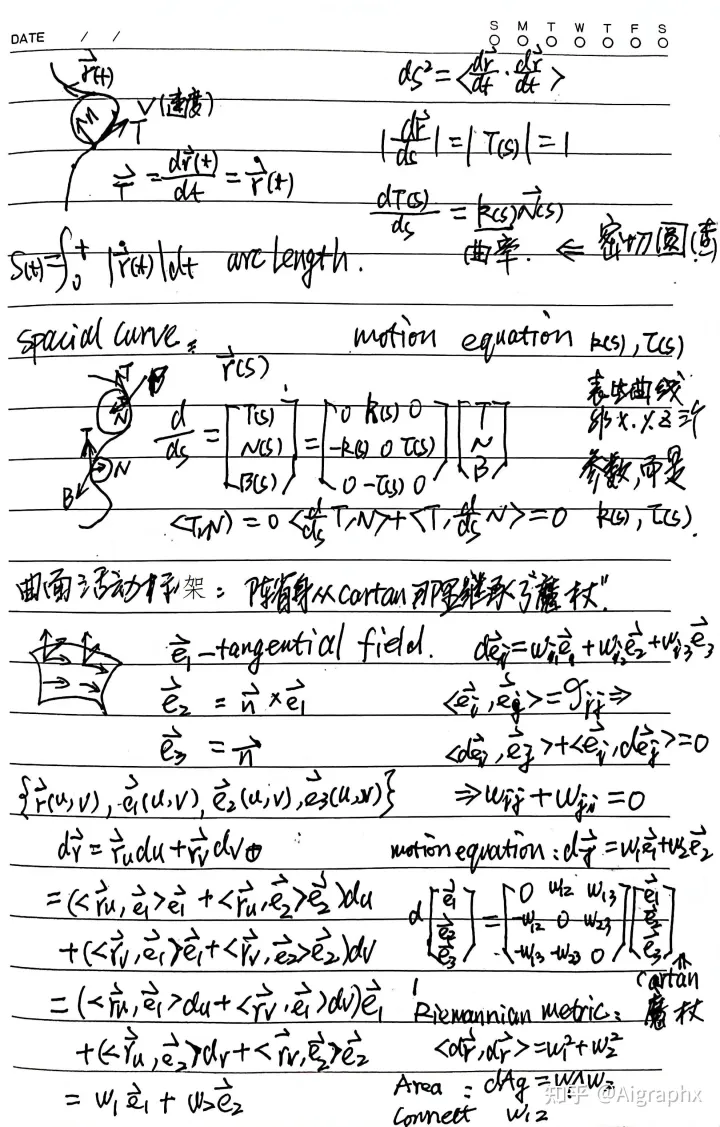 DATE / /
S M T W T F S
r⃗(t)
V(速度)
T
N
ds² = <dr⃗/dt · dr⃗/dt>
|dr⃗/ds| = |T(s)| = 1
T⃗ = dr⃗(t)/dt = ṙ⃗(t)
dT(s)/ds = k(s)N⃗(s)
曲率. ⇐ 密切圆(
S(t) = ∫₀ᵗ |ṙ⃗(t)|dt arc length.
spacial curve: motion equation k(s), τ(s)
r⃗(s)
T
N
B
T
N
d/ds = [T(s) N(s) B(s)] = [0 k(s) 0 -k(s) 0 τ(s) 0 -τ(s) 0] [T N B]
表出曲线
非x.y.z三个
参数,而是
k(s), τ(s).
<T,N> = 0 <d/ds T,N> + <T, d/ds N> = 0
曲面活动标架: 陈省身从cartan那里继承了"魔杖".
e⃗₁ - tangential field. de⃗ᵢ = wᵢ₁e⃗₁ + wᵢ₂e⃗₂ + wᵢ₃e⃗₃
e⃗₂ = n⃗ × e⃗₁ <e⃗ᵢ, e⃗ⱼ> = gᵢⱼ ⇒
e⃗₃ = n⃗ <de⃗ᵢ, e⃗ⱼ> + <e⃗ᵢ, de⃗ⱼ> = 0
{r⃗(u,v), e⃗₁(u,v), e⃗₂(u,v), e⃗₃(u,v)} ⇒ wᵢⱼ + wⱼᵢ = 0
dr⃗ = r⃗ᵤdu + r⃗ᵥdv motion equation: dr⃗ = w₁e⃗₁ + w₂e⃗₂
= (<r⃗ᵤ, e⃗₁>e⃗₁ + <r⃗ᵤ, e⃗₂>e⃗₂)du
+ (<r⃗ᵥ, e⃗₁>e⃗₁ + <r⃗ᵥ, e⃗₂>e⃗₂)dv
d[e⃗₁ e⃗₂ e⃗₃] = [0 w₁₂ w₁₃ -w₁₂ 0 w₂₃ -w₁₃ -w₂₃ 0] [e⃗₁ e⃗₂ e⃗₃]
⇑
cartan
魔杖
= (<r⃗ᵤ, e⃗₁>du + <r⃗ᵥ, e⃗₁>dv)e⃗₁
Riemannian metric:
+ (<r⃗ᵤ, e⃗₂>dv + <r⃗ᵥ, e⃗₂>e⃗₂
<dr⃗, dr⃗> = w₁² + w₂²
= w₁e⃗₁ + w₂e⃗₂
Area: dAg = w₁∧w₂
Connect w₁₂
知乎 @Aigraphx